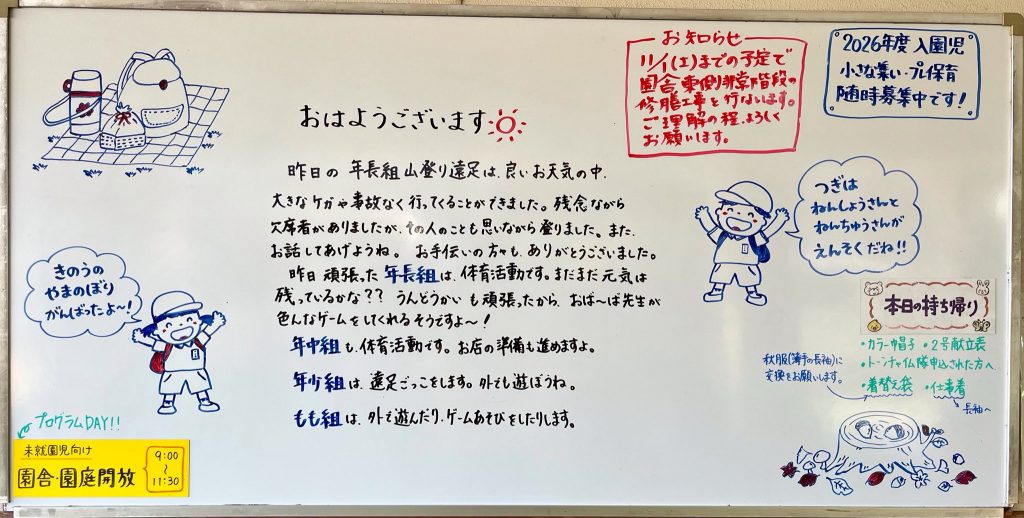 お知らせ
11/1(土)までの予定で
園舎東側非常階段の
修膳工事を行ないます。
ご理解の程、よろしく
お願いします。
2026年度 入園児
小さな集い・プレ保育
随時募集中です！
おはようございます
昨日の 年長組 山登り遠足は、良いお天気の中、
大きなケガや事故なく行ってくることができました。残念ながら
欠席者がありましたが、その人のことも思いながら登りました。また、
お話してあげようね。 お手伝いの方々も、ありがとうございました。
昨日 頑張った 年長組は、体育活動です。まだまだ元気は
残っているかな？？ うんどうかいも頑張ったから、おば〜ば先生が
色んなゲームをしてくれるそうですよ〜！
年中組も、体育活動です。お店の準備も進めますよ。
年少組は、遠足ごっこをします。外でも遊ぼうね。
もも組は、外で遊んだり、ゲームあそびをしたりします。
つぎは
ねんしょうさんと
ねんちゅうさんが
えんそくだね!!
きのうの
やまのぼり
がんばったよ〜！
本日の持ち帰り
・カラー帽子 ・2号献立表
・トーンチャイム隊申込された方へ
・着替え袋 ・仕事着
秋服(薄手の長袖)に
交換をお願いします。
長袖へ
プログラムDAY!!
未就園児向け
園舎・園庭開放
9:00
〜
11:30